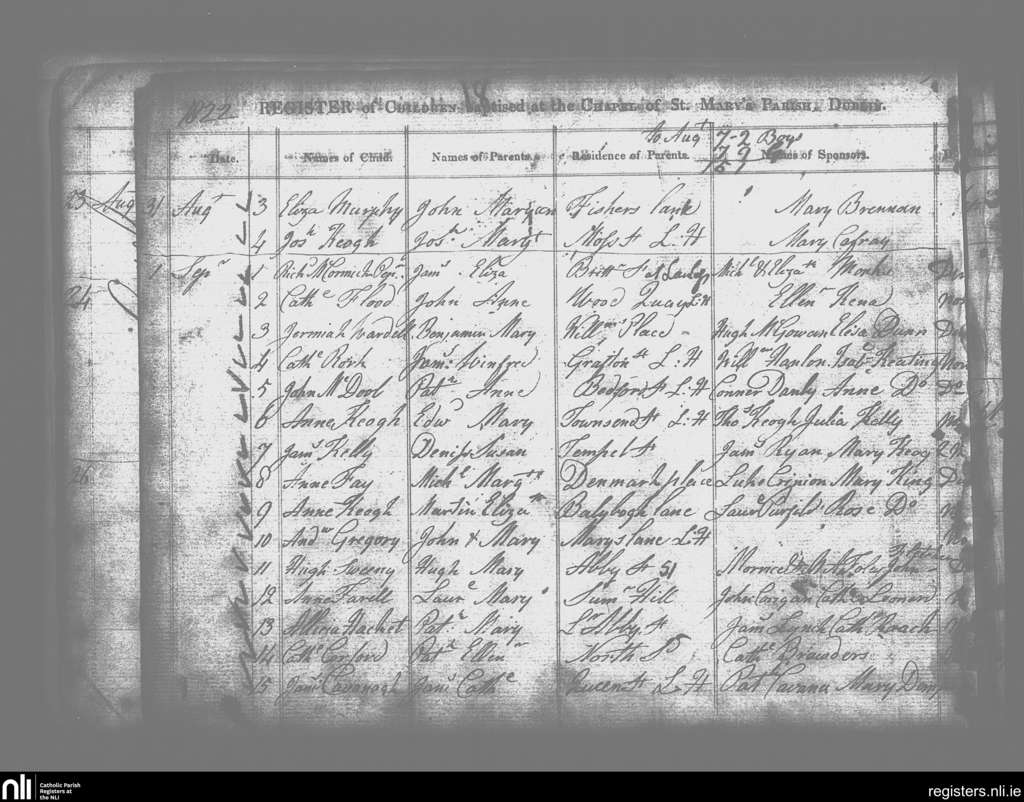 18
1822 REGISTER of CHILDREN baptised at the CHAPEL of St. MARY'S PARISH, DUBLIN.
to Augt 72 Boys
79
151
Date. Names of Child. Names of Parents. Residence of Parents. Names of Sponsors.
23 Aug 31 Augt 3 Eliza Murphy John Maryan Fishers lane Mary Brennan
4 Josh Keogh Josh Maryt Moss St L.H Mary Cafray
1 Sepr 1 Richd McCormick Jams Eliza Britn St Michl & Elizath Monks
24 2 Cathe Flood John Anne Wood Quay L:H Ellen Kena
3 Jermiah Wardell Benjamin Mary Willms Place Hugh McGowan Eliza Dunn
4 Cathe Rosh Jams Winfred Grafton St L:H Willm Hanlon Isabe Keating
5 John McDool Patk Anne Bedford St L:H Conner Danly Anne Do Do
6 Anne Keogh Edwd Mary Townsend St L:H Thos Keogh Julia Kelly
7 Jams Kelly Deniss Susan Tempel St Jams Ryan Mary Keog
26 8 Anne Fay Michl Margtt Denmark place Luke Crinion Mary King
9 Anne Keogh Martin Elizath Balybogh lane Laue Purfild Rose Do
10 Andw Gregory John & Mary Marys lane L.H
11 Hugh Sweeny Hugh Mary Abby St 51 John
12 Anne Farell Laure Mary Sumr Hill John Corigan Cathe Leonerd
13 Allicia Hachet Patk Mary Lr Abby St Jams Lynch Cathe Roach
14 Cathe Corford Patk Ellen North S Cathe Braunders
15 Jams Cavanagh Jams Cathe Queen St L.H Pat Cavana Mary
nli Catholic Parish
Registers at
the NLI
registers.nli.ie